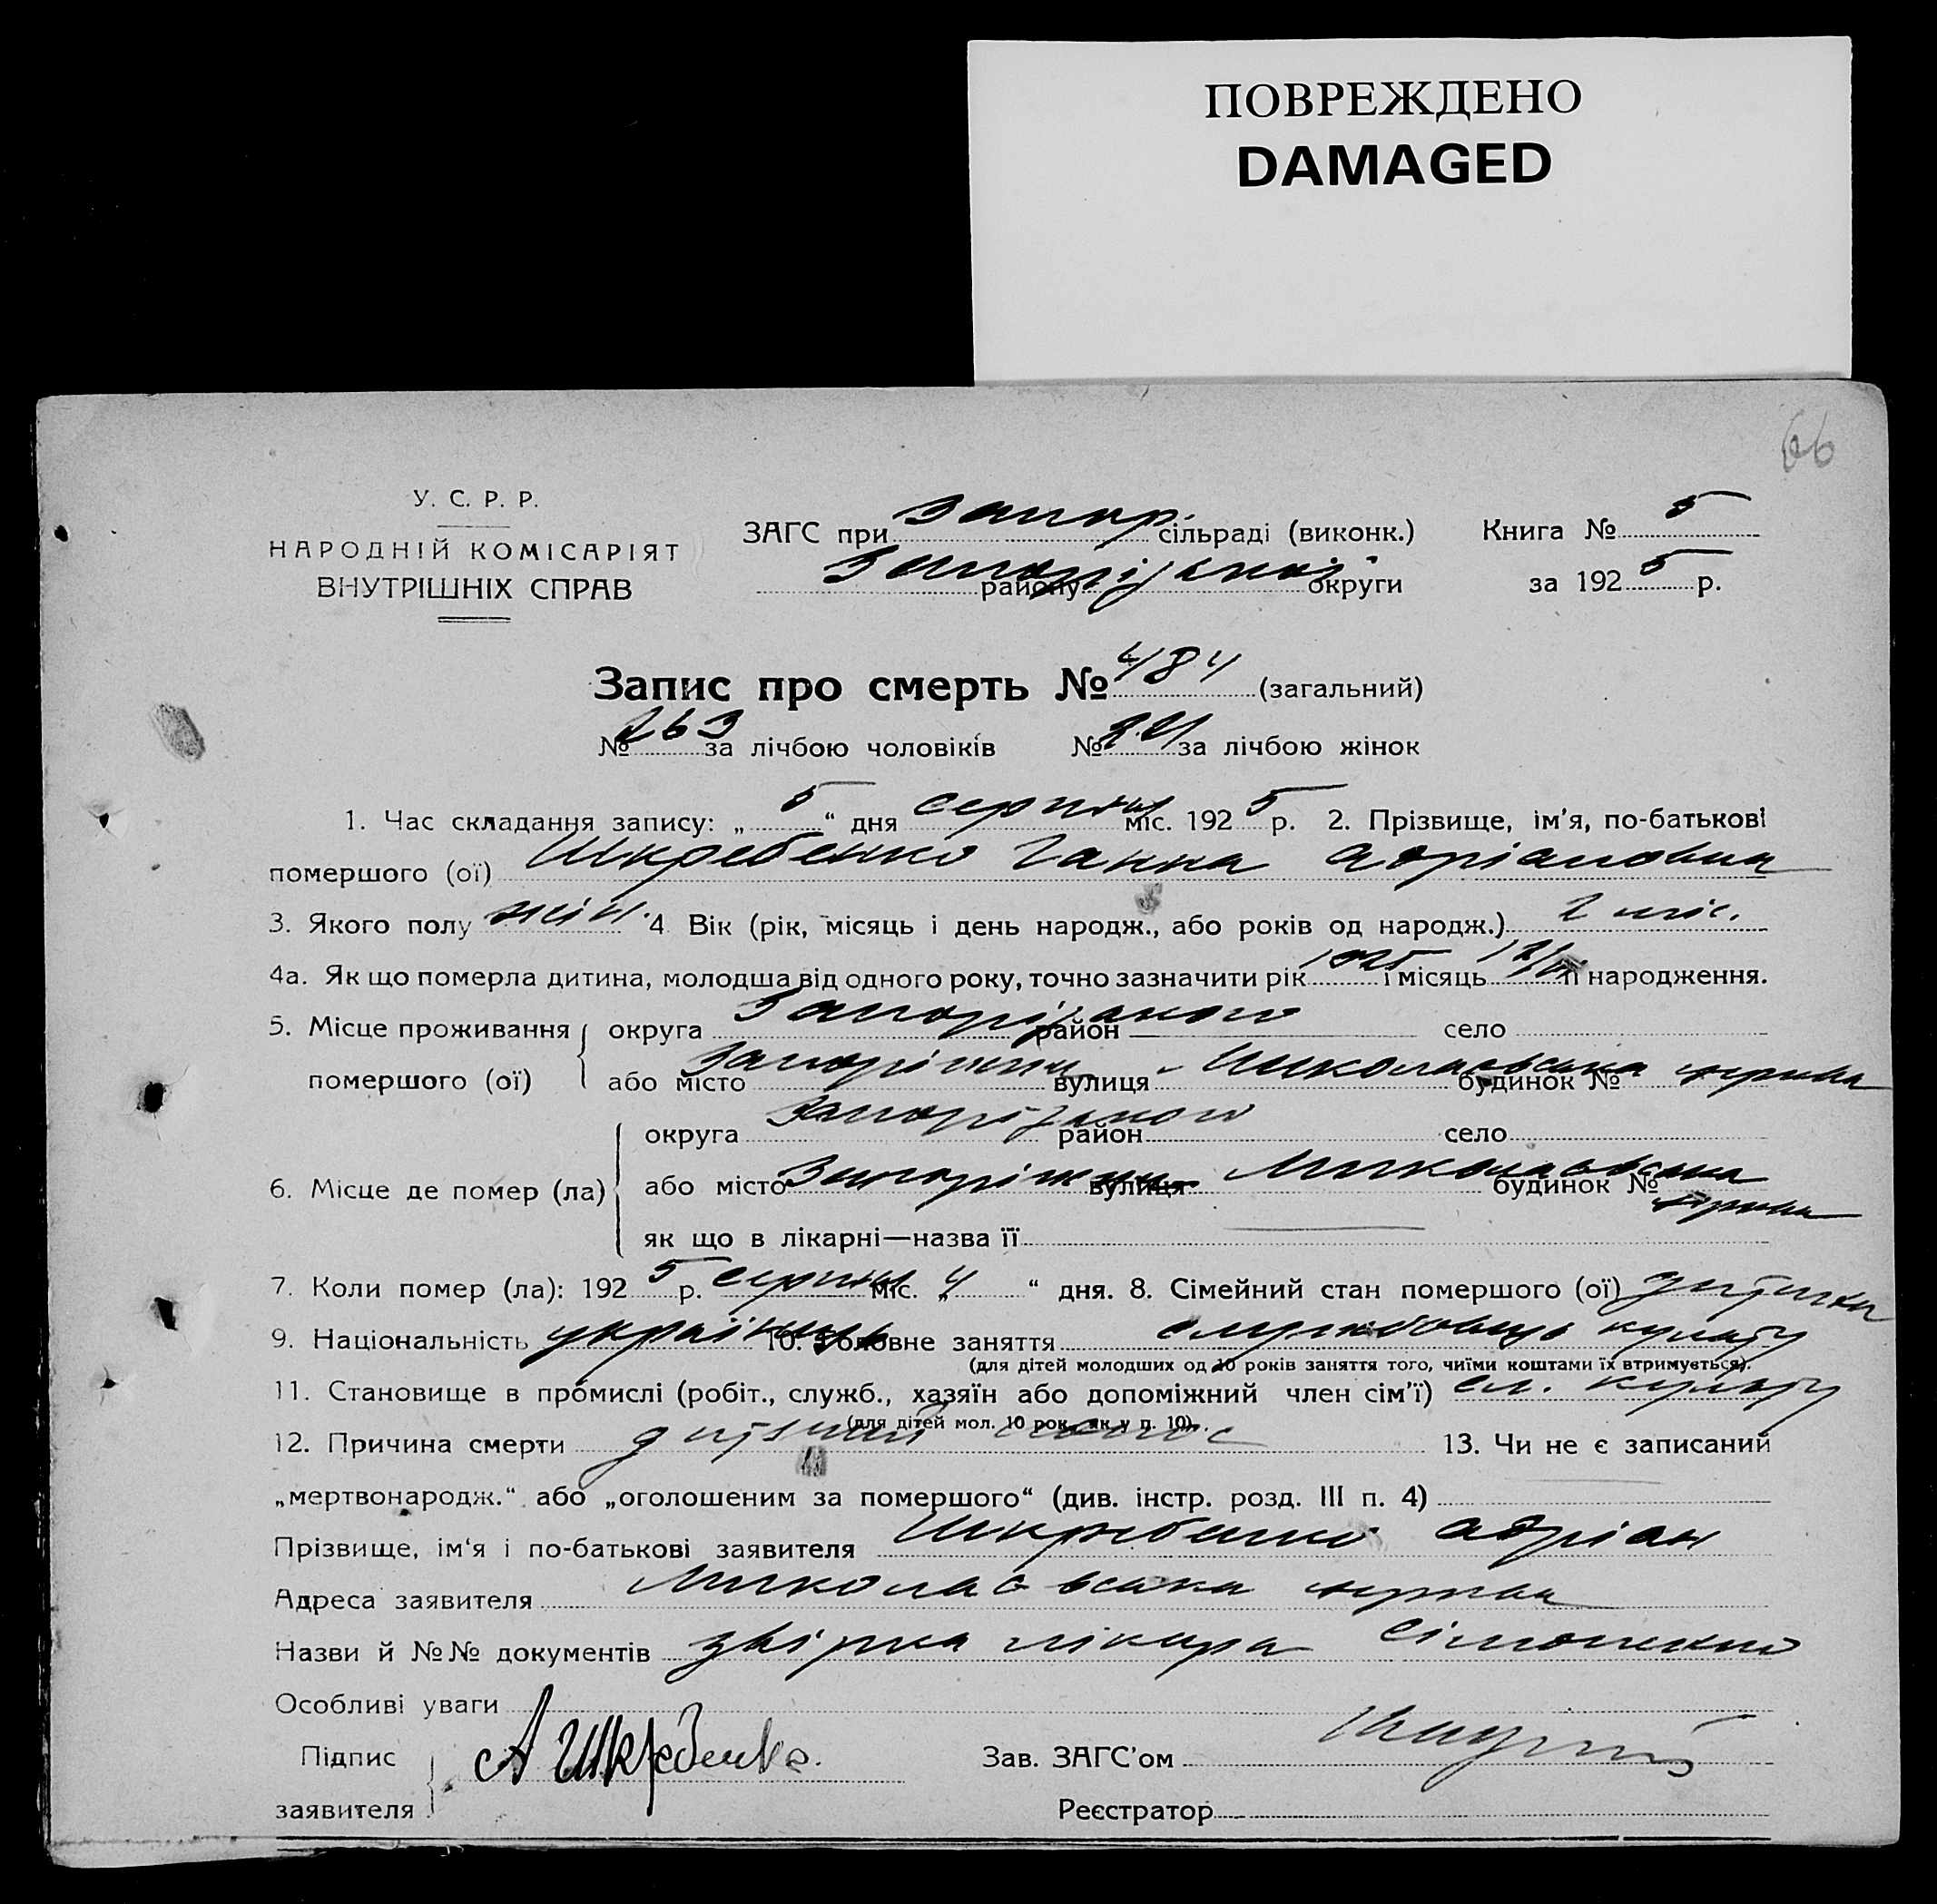 ПОВРЕЖДЕНО
DAMAGED
66
У. С. Р. Р.
НАРОДНІЙ КОМІСАРІЯТ
ВНУТРІШНІХ СПРАВ
ЗАГС при Запор. сільраді (виконк.)
Запорізької району округи
Книга № 5
за 192 5 р.
Запис про смерть № 484 (загальний)
№ 263 за лічбою чоловіків № 221 за лічбою жінок
1. Час складання запису: „ 5 “ дня серпня міс. 192 5 р. 2. Прізвище, ім’я, по-батькові
помершого (ої) Шкребенко Ганна Адріановна
3. Якого полу жін. 4 Вік (рік, місяць і день народж., або років од народж.) 2 міс.
4а. Як що померла дитина, молодша від одного року, точно зазначити рік 1925 і місяць її народження.
5. Місце проживання помершого (ої)
округа Запорізького район село
або місто Запоріжжя вулиця Миколаєвська будинок № церква
6. Місце де помер (ла)
округа Запорізького район село
або місто Запоріжжя вулиця Миколаєвська будинок № церква
як що в лікарні—назва її
7. Коли помер (ла): 192 5 р. серпня міс. „ 4 “ дня. 8. Сімейний стан помершого (ої) дитина
9. Національність українка 10. Головне заняття службовець культу
(для дітей молодших од 10 років заняття того, чиїми коштами їх втримується).
11. Становище в промислі (робіт., служб., хазяїн або допоміжний член сім’ї) сл. культу
(для дітей мол. 10 рок. як у п. 10)
12. Причина смерти дитячий понос 13. Чи не є записаний
„мертвонародж.“ або „оголошеним за помершого“ (див. інстр. розд. III п. 4)
Прізвище, ім‘я і по-батькові заявителя Шкребенко Адріан
Адреса заявителя Миколаєвська церква
Назви й №№ документів довірка лікара Сімоненко
Особливі уваги
Підпис заявителя А Шкребенко.
Зав. ЗАГС’ом
Реєстратор